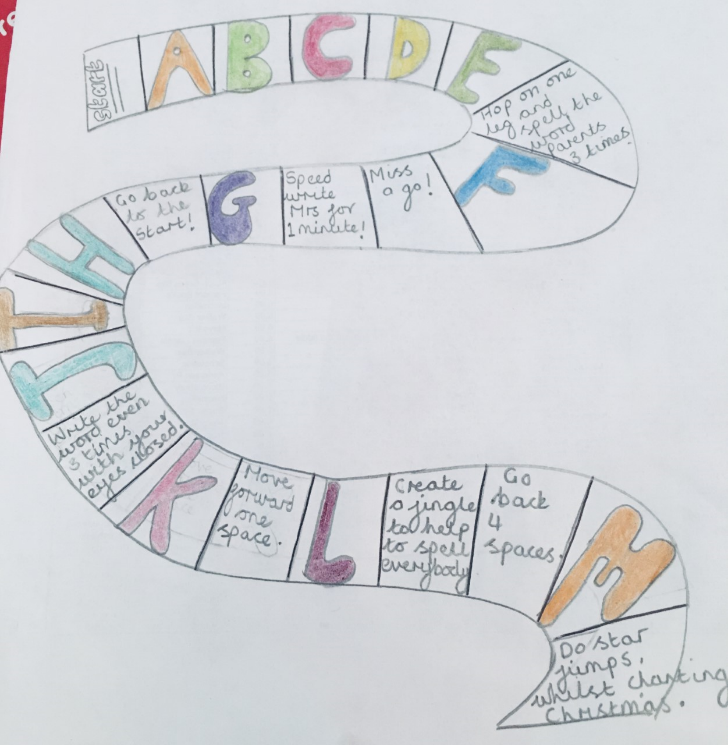 start
A
B
C
D
E
Hop on one
leg and
spell the
word
parents
3 times.
F
Miss
a go!
Speed
write
Mrs for
1 minute!
G
Go back
to the
start!
H
I
J
Write the
word even
3 times
with your
eyes closed.
K
Move
forward
one
space.
L
Create
a jingle
to help
to spell
everybody
Go
back
4
spaces.
M
Do star
jumps,
whilst chanting
Christmas.